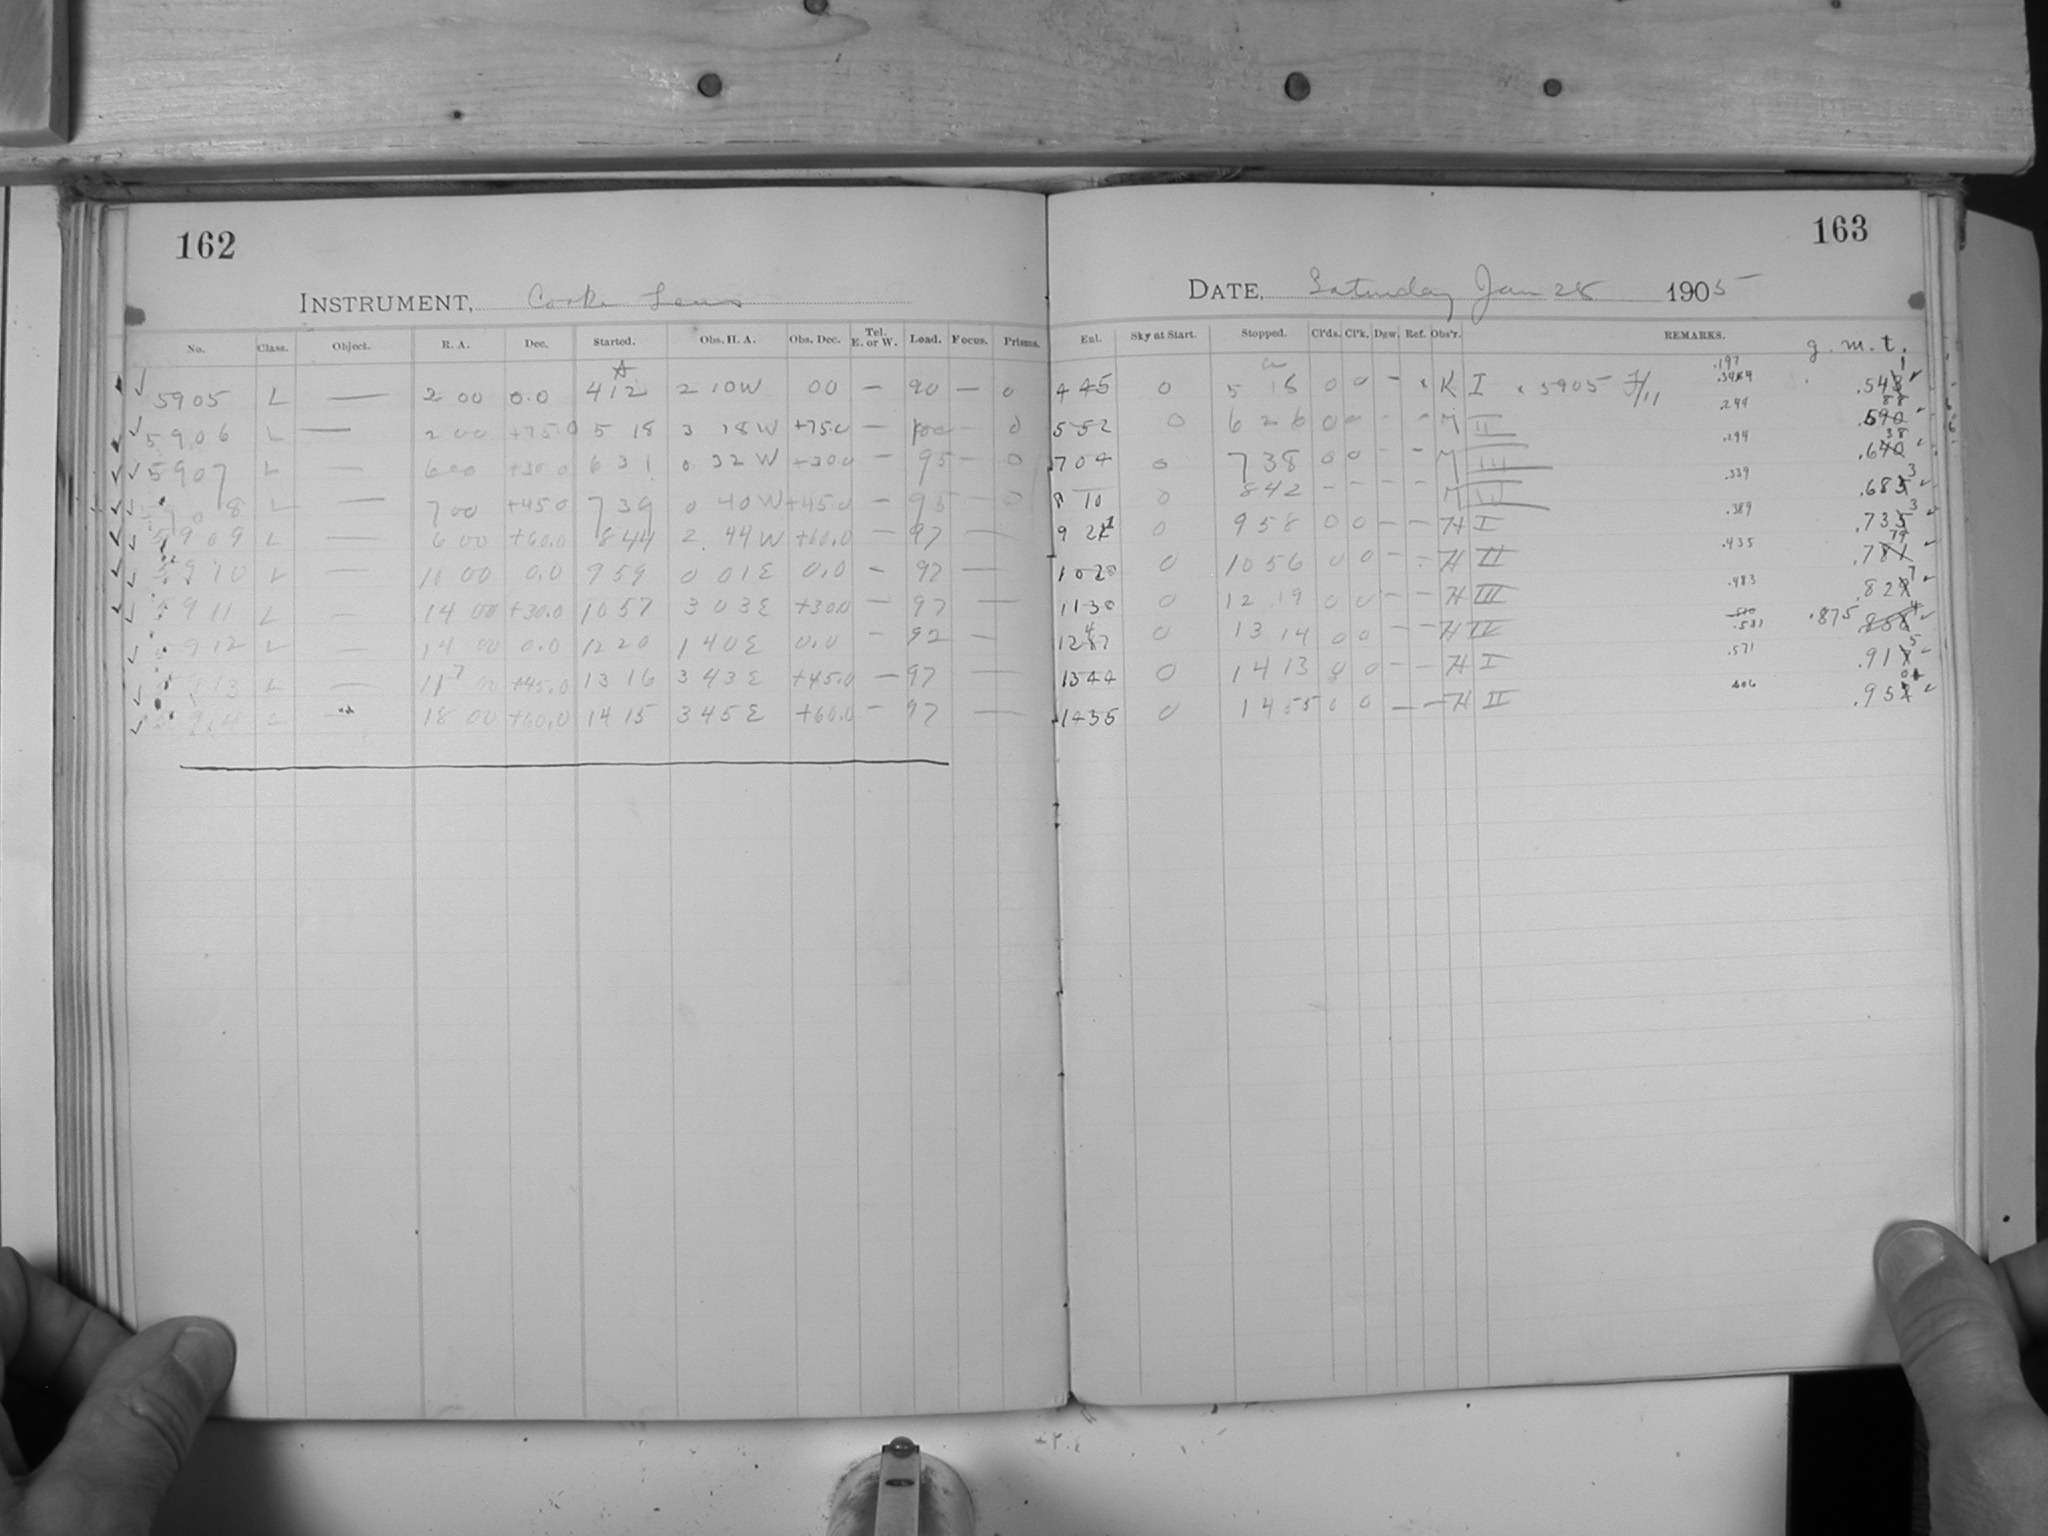 162
163
INSTRUMENT, Cooke Lens
DATE, Saturday Jan 28 1905
No. Class. Object. R. A. Dec. Started. Obs. H. A. Obs. Dec. Tel. E. or W. Load. Focus. Prisms. Enl. Sky at Start. Stopped. Cl'ds. Cl'k. Dew. Ref. Obs'r. REMARKS. g. m. t.
5905 L — 2 00 0.0 4 12 2 10 W 00 — 90 — 0 4 45 0 5 18 0 0 - K I 5905 .197
5906 L — 2 00 +75.0 5 18 3 18 W +75.0 — 100 — 0 5 52 0 6 26 0 0 - - M II .244 .590 88
5907 L — 6 00 +30.0 6 31 0 32 W +30.0 — 95 — 0 7 04 0 7 38 0 0 - - M III .294 .640 38
5908 L — 7 00 +45.0 7 39 0 40 W +45.0 — 95 — 0 8 10 0 8 42 - - - - M IV .339 .685 3
5909 L — 6 00 +60.0 8 44 2 44 W +60.0 — 97 — 9 21 0 9 58 0 0 - - H I .389 .735 3
5910 L — 10 00 0.0 9 59 0 01 E 0.0 — 97 — 10 28 0 10 56 0 0 - - H II .435 .781 79
5911 L — 14 00 +30.0 10 57 3 03 E +30.0 — 97 — 11 38 0 12 19 0 0 - - H III .483 .82 7
5912 L — 14 00 0.0 12 20 1 40 E 0.0 — 92 — 12 47 0 13 14 0 0 - - H IV .531 .875
5913 L — 17 00 +45.0 13 16 3 43 E +45.0 — 97 — 13 44 0 14 13 0 0 - - H I .571 .91 5
5914 L — 18 00 +60.0 14 15 3 45 E +60.0 — 97 — 14 35 0 14 55 0 0 - - H II .606 .95